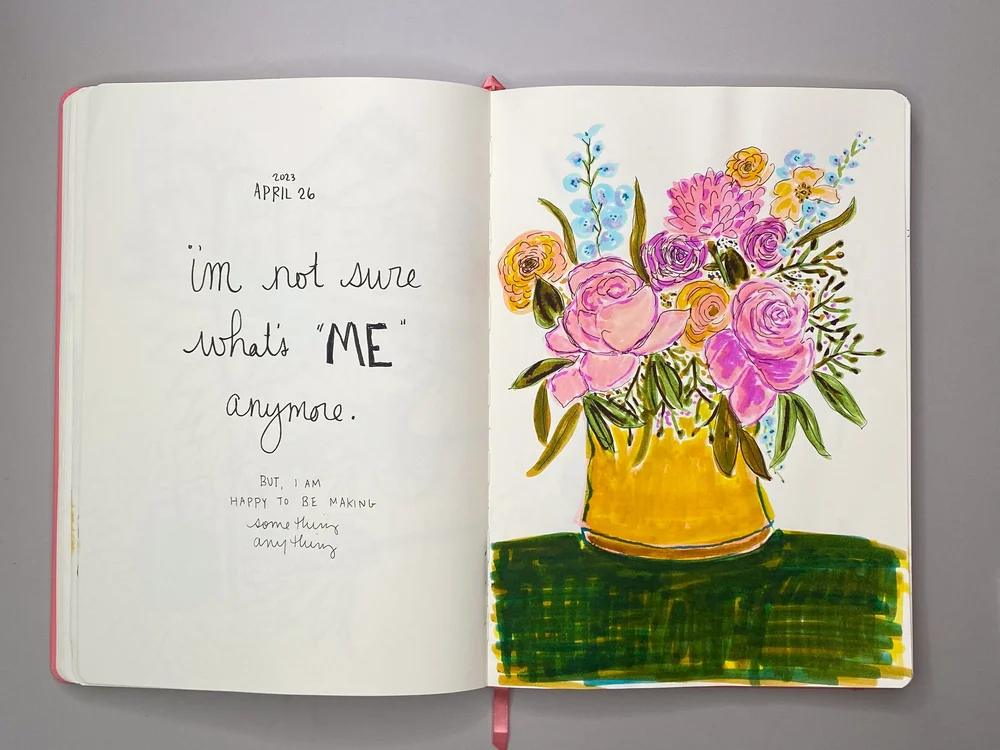 2023
APRIL 26
i'm not sure
what's "ME"
anymore.
BUT, I AM
HAPPY TO BE MAKING
something
anything